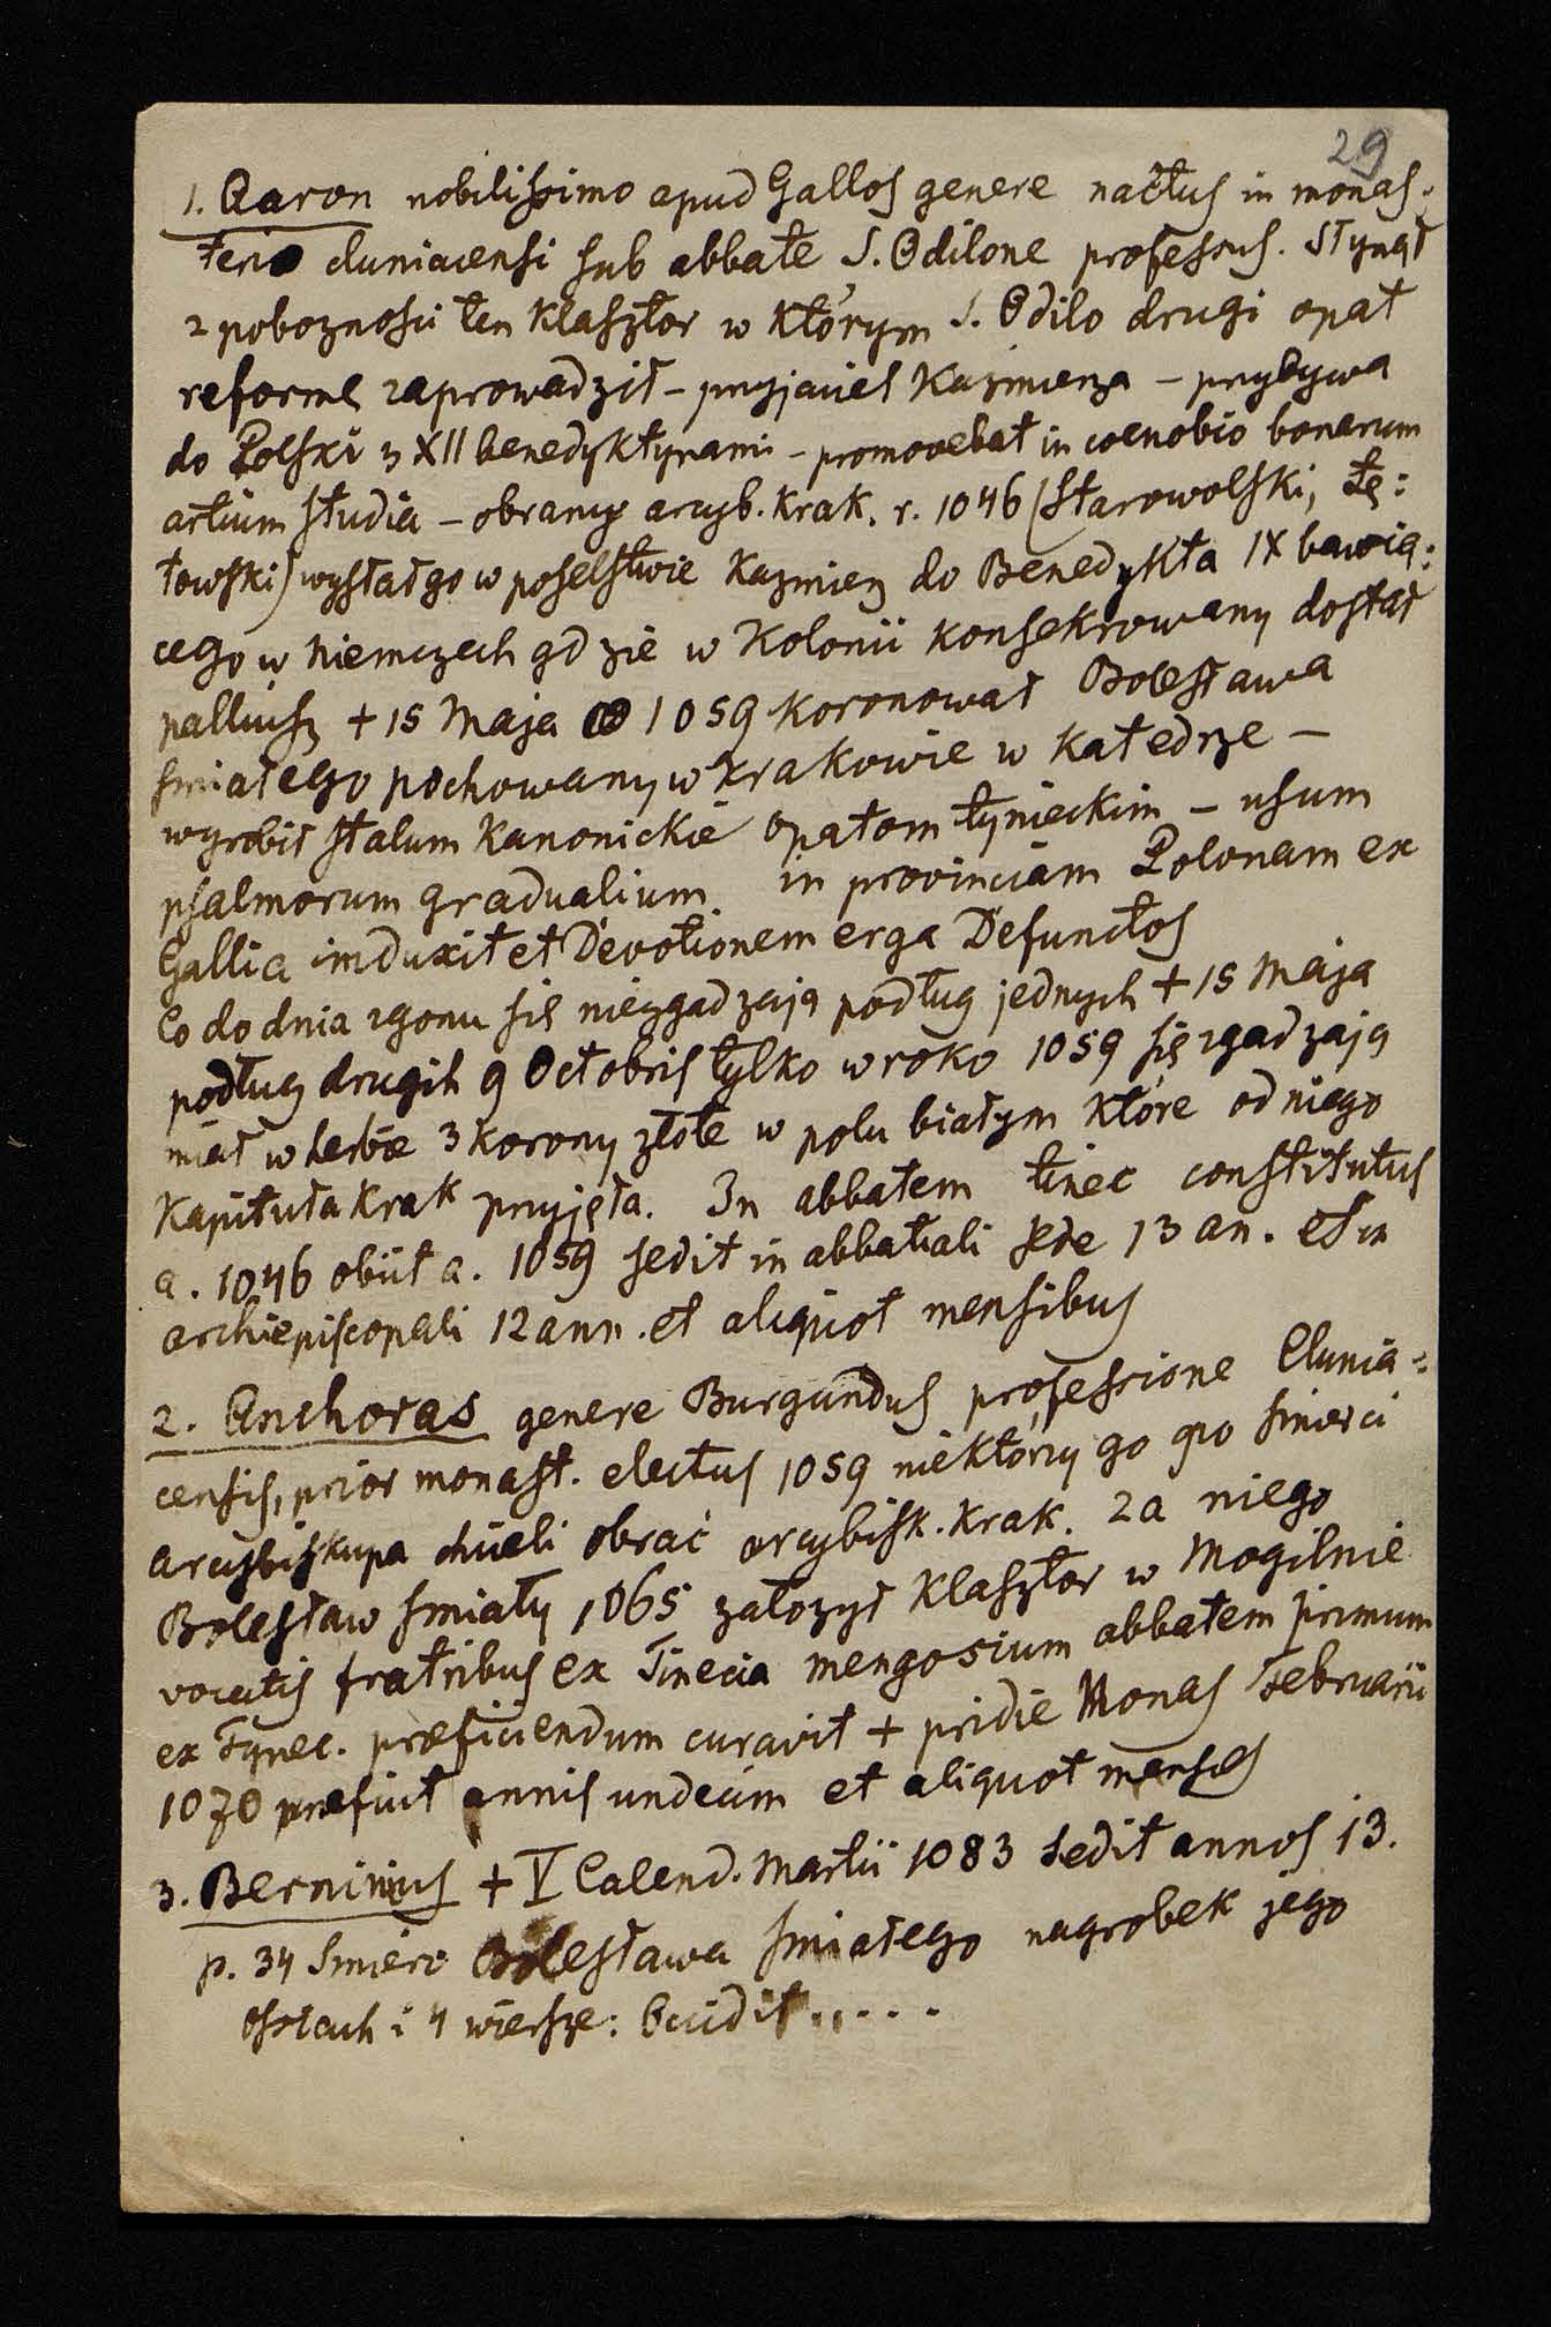 29
1. Aaron nobilissimo apud Gallos genere nactus in monas-
terio cluniacensi sub abbate S. Odilone professus. Słynął
z poboznosci ten klasztor w którym S. Odilo drugi opat
reformę zaprowadził – przyjaciel Kazmierza – przybywa
do Polski z XII benedyktynami – promovebat in coenobio bonarum
artium studia – obrany arcyb. krak. r. 1046 (Starowolski, Łę:
towski) wysłał go w poselstwie Kazmierz do Benedykta IX bawią:
cego w Niemczech gdzie w Kolonii konsekrowany dostał
palliusz + 15 Maja 1059 koronował Bolesława
smiałego pochowany w Krakowie w Katedrze –
wyrobił stalum kanonickie opatom tynieckim – usum
psalmorum gradualium in provinciam Polonam ex
Gallia induxit et Devotionem erga Defunctos
Co do dnia zgonu się niezgadzają podług jednych + 15 Maja
podług drugih 9 Octobris tylko w roko 1059 się zgadzają
miał w herbie 3 korony złote w polu białym które od niego
Kapituła Krak przyjęła. In abbatem tinec constitutus
a. 1046 obiit a. 1059 sedit in abbatiali sede 13 an. et in
archiepiscopali 12 ann. et aliquot mensibus
2. Anchoras genere Burgundus professione Clunia-
censis, prior monast. electus 1059 niektórzy go po smierci
arcybiskupa chcieli obrać arcybisk. krak. za niego
Bolesław smiały 1065 załozył klasztor w Mogilnie
vocatis fratribus ex Tinecia mengosium abbatem primum
ex Tynec. præficiendum curavit + pridie Nonas Februarii
1070 præfuit annis undecim et aliquot menses
3. Berninius + V Calend. Martii 1083 sedit annos 13.
p. 34 Smierc Bolesława smiałego nagrobek jego
Ossiach i 4 wiersze: Occidit.....